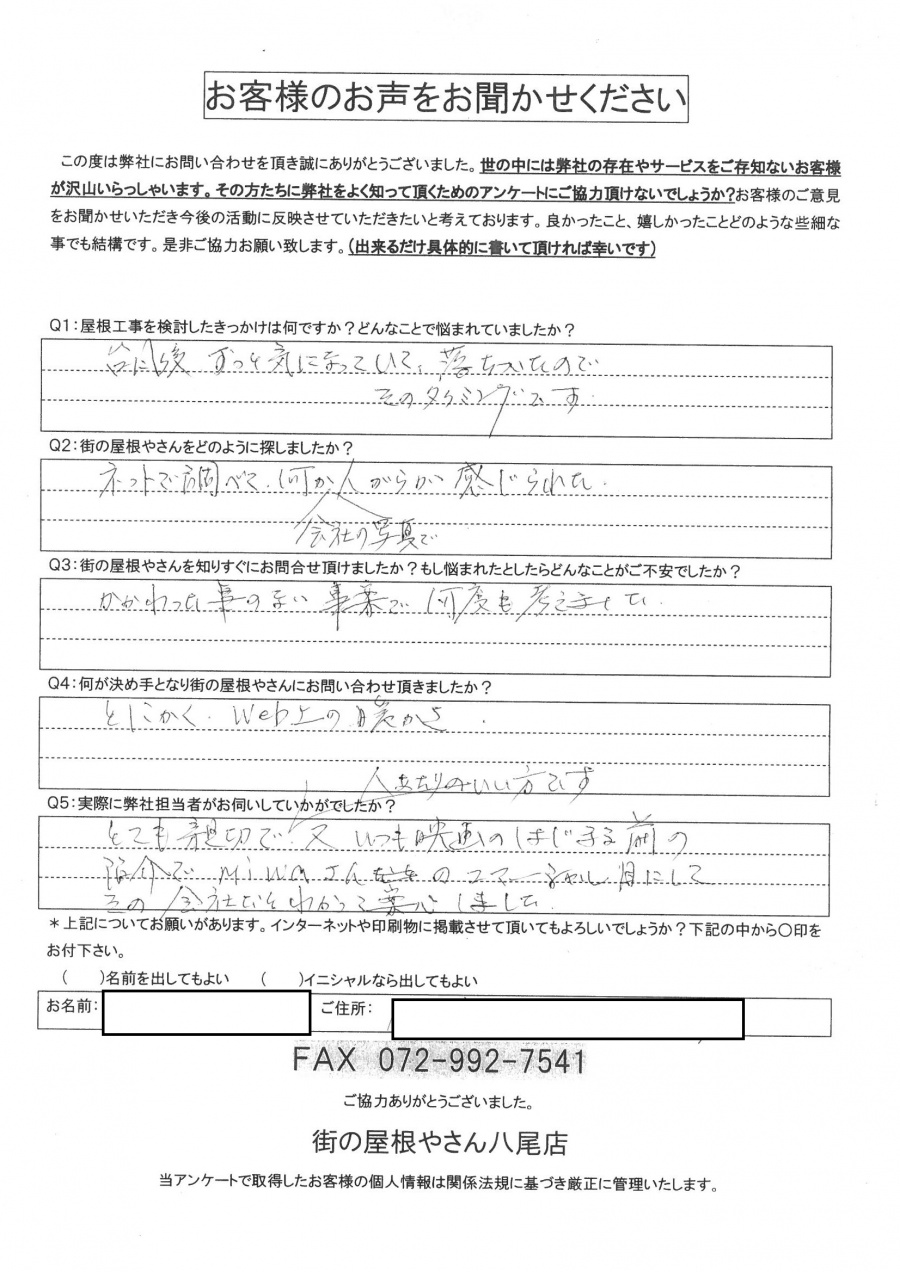 お客様のお声をお聞かせください
この度は弊社にお問い合わせを頂き誠にありがとうございました。世の中には弊社の存在やサービスをご存知ないお客様
が沢山いらっしゃいます。その方たちに弊社をよく知って頂くためのアンケートにご協力頂けないでしょうか?お客様のご意見
をお聞かせいただき今後の活動に反映させていただきたいと考えております。良かったこと、嬉しかったことどのような些細な
事でも結構です。是非ご協力お願い致します。(出来るだけ具体的に書いて頂ければ幸いです)
Q1:屋根工事を検討したきっかけは何ですか?どんなことで悩まれていましたか?
台風後 ずっと気になっていて、落ちついたので
そのタイミングです.
Q2:街の屋根やさんをどのように探しましたか?
ネットで調べて、何か人がらが感じられた.
会社の写真で
Q3:街の屋根やさんを知りすぐにお問合せ頂けましたか?もし悩まれたとしたらどんなことがご不安でしたか?
かかわった事のない事業で何度も考えました.
Q4:何が決め手となり街の屋根やさんにお問い合わせ頂きましたか?
とにかく、Web上の暖かさ.
人当たりのいい方です
Q5:実際に弊社担当者がお伺いしていかがでしたか?
とても親切で 又 いつも映画のはじまる前の
のコマーシャル 目にして
その会社だとわかって安心しました.
*上記についてお願いがあります。インターネットや印刷物に掲載させて頂いてもよろしいでしょうか?下記の中から〇印を
お付下さい。
( )名前を出してもよい ( )イニシャルなら出してもよい
お名前: ご住所:
FAX 072-992-7541
ご協力ありがとうございました。
街の屋根やさん八尾店
当アンケートで取得したお客様の個人情報は関係法規に基づき厳正に管理いたします。